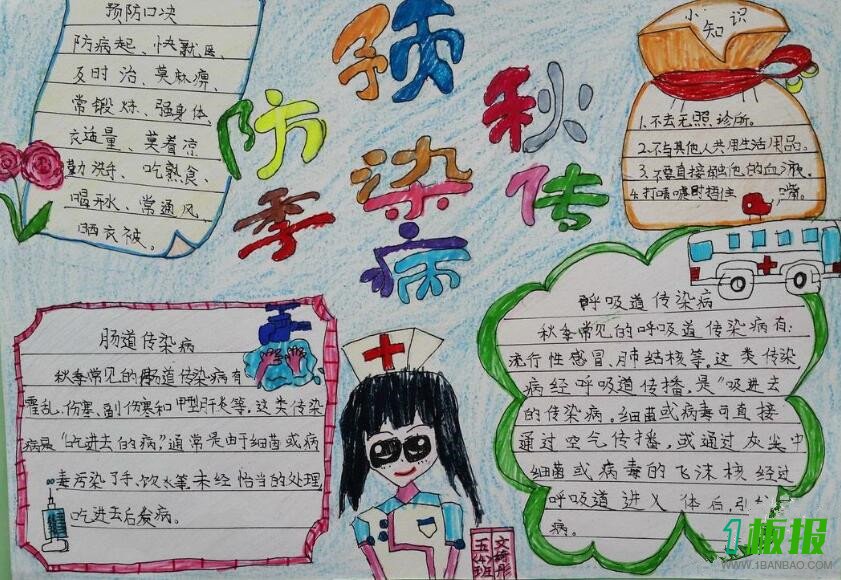 预防秋季传染病
预防口决
防病起、快就医、
及时治、莫麻痹、
常锻炼、强身体、
衣适量、莫着凉
勤洗手、吃熟食、
喝开水、常通风、
晒衣被。
小知识
1.不去无照诊所。
2.不与其他人共用生活用品。
3.不要直接触他的血液。
4.打喷嚏时捂住 嘴。
肠道传染病
秋季常见的肠道传染病有
霍乱、伤寒、副伤寒和甲型肝炎等。这类传染
病是"吃进去的病",通常是由于细菌或病
毒污染了手、饮水等未经恰当的处理
吃进去后发病。
呼吸道传染病
秋季常见的呼吸道传染病有:
流行性感冒、肺结核等。这类传染
病经呼吸道传播,是"吸进去
的传染病。细菌或病毒可直接
通过空气传播,或通过灰尘中
细菌或病毒的飞沫核经过
呼吸道进入体后,引
病。
五(4)班
文
1板报
WWW.1BANBAO.COM